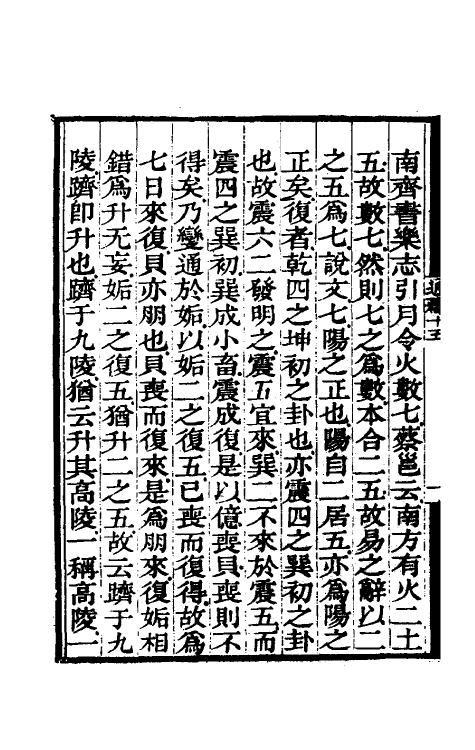 南齊書樂志引月令火數七蔡邕云南方有火二土
五故數七然則七之為數本合二五故易之辭以二
之五為七說文七陽之正也陽自二居五亦為陽之
正矣復者乾四之坤初之卦也亦震四之巽初之卦
也故震六二發明之震五宜來巽二不來於震五而
震四之巽初巽成小畜震成復是以億喪貝喪則不
得矣乃變通於姤以姤二之復五已喪而復得故為
七日來復貝亦朋也貝喪而復來是為朋來復姤相
錯為升无妄姤二之復五猶升二之五故云躋于九
陵躋即升也躋于九陵猶云升其高陵一稱高陵一
通釋十五
一